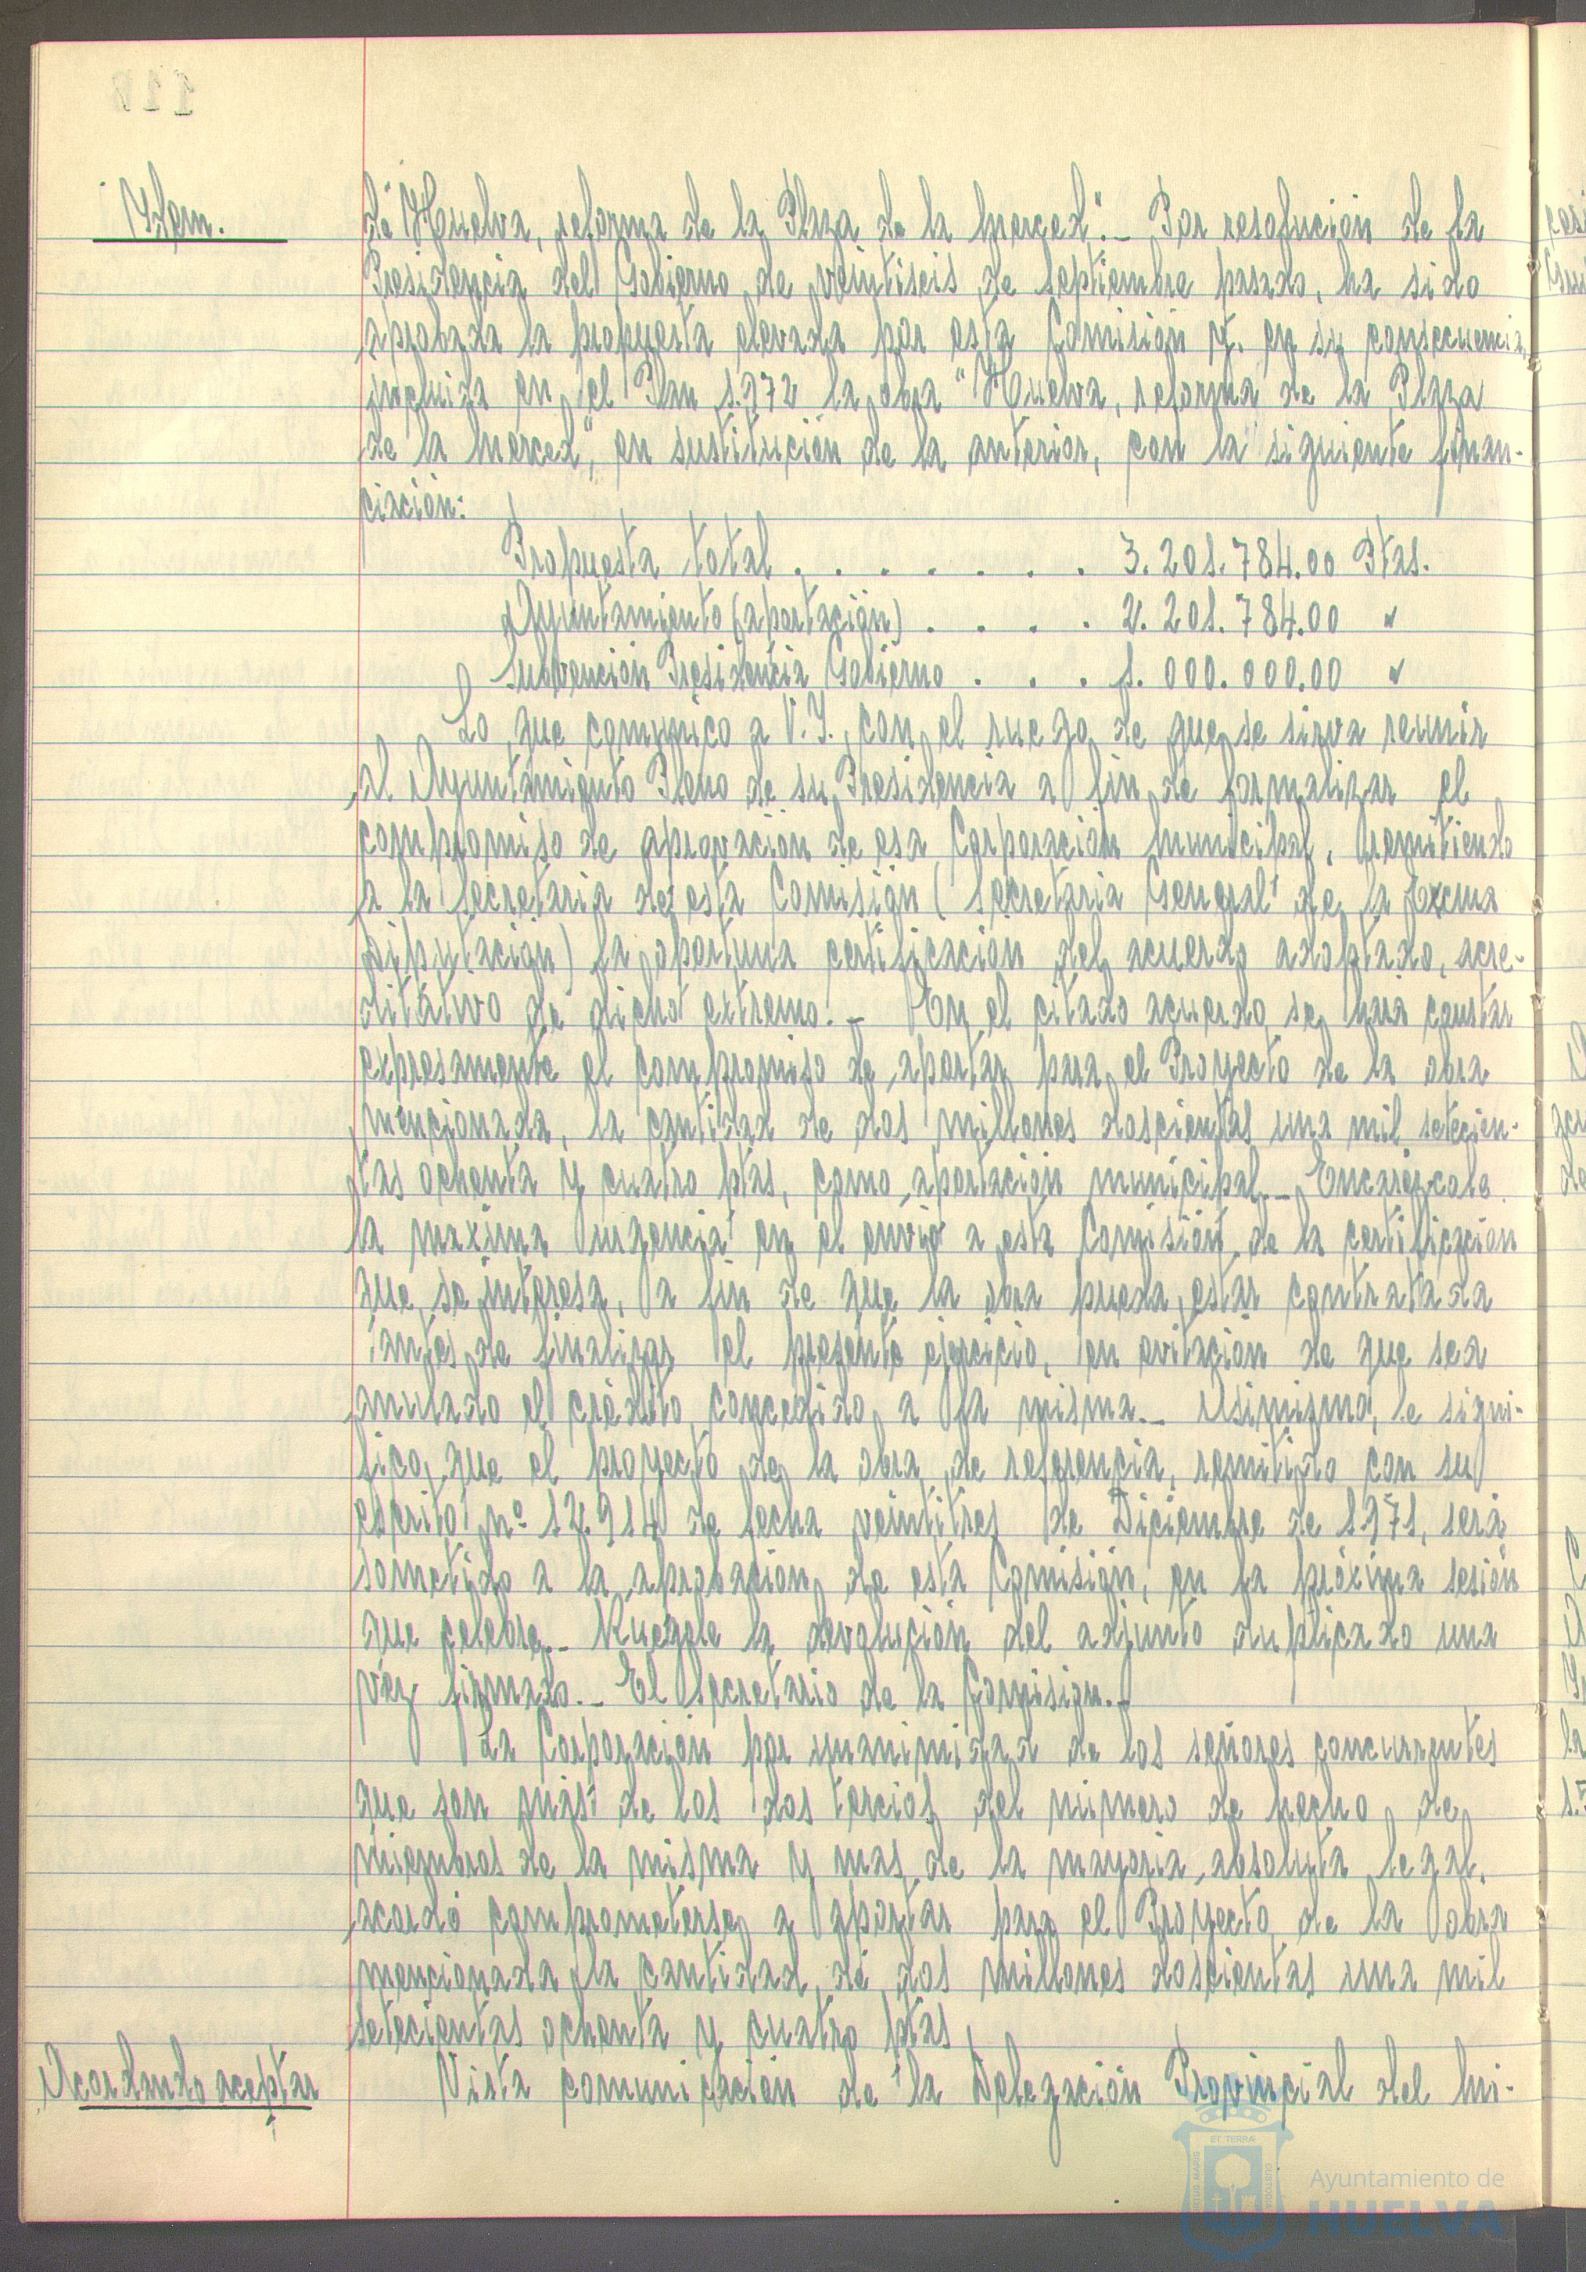 Idem.
de "Huelva, reforma de la Plaza de la Merced".- Por resolución de la
Presidencia del Gobierno de veintiseis de septiembre pasado, ha sido
aprobada la propuesta elevada por esta Comisión y, en su consecuencia,
incluida en el Plan 1.972 la obra "Huelva, reforma de la Plaza
de la Merced", en sustitución de la anterior, con la siguiente finan-
ciación:
Propuesta total . . . . . . . 3.201.784.00 Ptas.
Ayuntamiento (aportación) . . . . 2.201.784.00 "
Subvención Presidencia Gobierno . . . 1.000.000.00 "
Lo que comunico a V.I., con el ruego de que se sirva reunir
al Ayuntamiento Pleno de su Presidencia a fin de formalizar el
compromiso de aprovación de esa Corporación Municipal, remitiendo
a la Secretaria de esta Comisión (Secretaria General de la Excma
Diputación) la oportuna certificación del acuerdo adoptado, acre-
ditativo de dicho extremo.- En el citado acuerdo se hará constar
expresamente el compromiso de aportar para el Proyecto de la obra
mencionada, la cantidad de dos millones doscientas una mil setecien-
tas ochenta y cuatro ptas, como aportación municipal.- Encarézcole
la maxima urgencia en el envio a esta Comisión de la certificación
que se interesa, a fin de que la obra pueda estar contratada
antes de finalizar el presente ejercicio, en evitación de que sea
anulado el crédito concedido a la misma.- Asimismo, le signi-
fico, que el proyecto de la obra de referencia, remitido con su
escrito nº 12.914 de fecha veintitres de Diciembre de 1.971, será
sometido a la aprobación de esta Comisión, en la próxima sesión
que celebre.- Ruégole la devolución del adjunto duplicado una
vez firmado.- El Secretario de la Comisión.-
La Corporación por unanimidad de los señores concurrentes
que son más de los dos tercios del número de hecho de
miembros de la misma y mas de la mayoria absoluta legal,
acordó comprometerse a aportar para el Proyecto de la obra
mencionada la cantidad de dos millones doscientas una mil
setecientas ochenta y cuatro ptas.
Acordando aceptar
Vista comunicación de la Delegación Provincial del Mi-
Ayuntamiento de
HUELVA